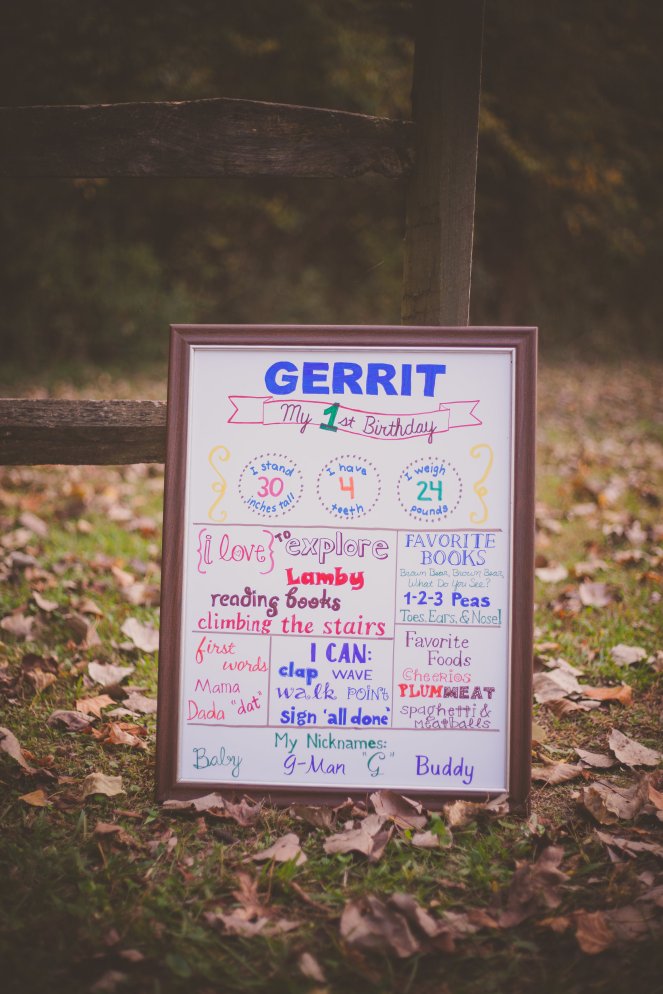 GERRIT
My 1st Birthday
I stand
30
inches tall
I have
4
teeth
I weigh
24
pounds
{i love} to explore
Lamby
reading books
climbing the stairs
FAVORITE
BOOKS
Brown Bear, Brown Bear,
What Do You See?
1-2-3 Peas
Toes, Ears, & Nose!
first
words
Mama
Dada "dat"
I CAN:
clap WAVE
walk POINT
sign 'all done'
Favorite
Foods
Cheerios
PLUM MEAT
spaghetti &
meatballs
My Nicknames:
Baby G-Man "G" Buddy